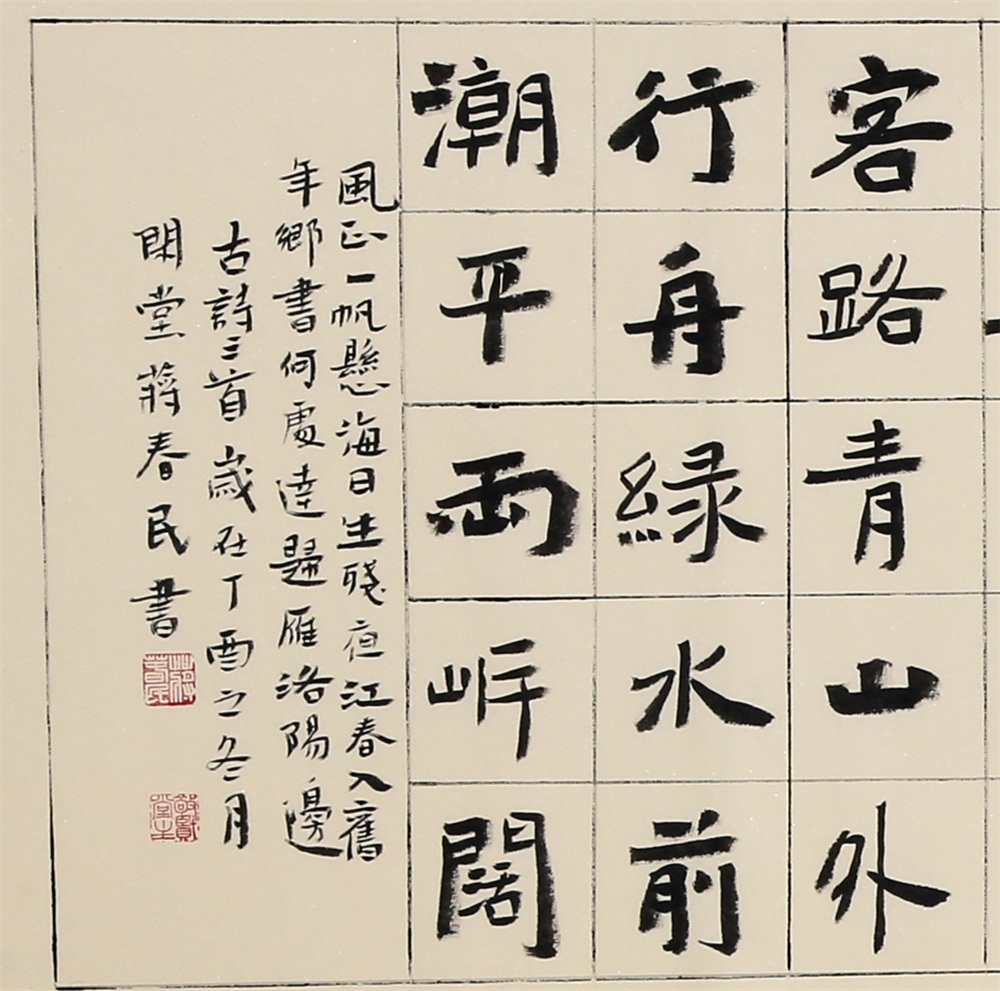 客路青山外
行舟緑水前
潮平兩岸闊
風正一帆懸海日生殘夜江春入舊
年鄉書何處達歸雁洛陽邊
古詩三首歲在丁酉之冬月
閑堂蔣春民書